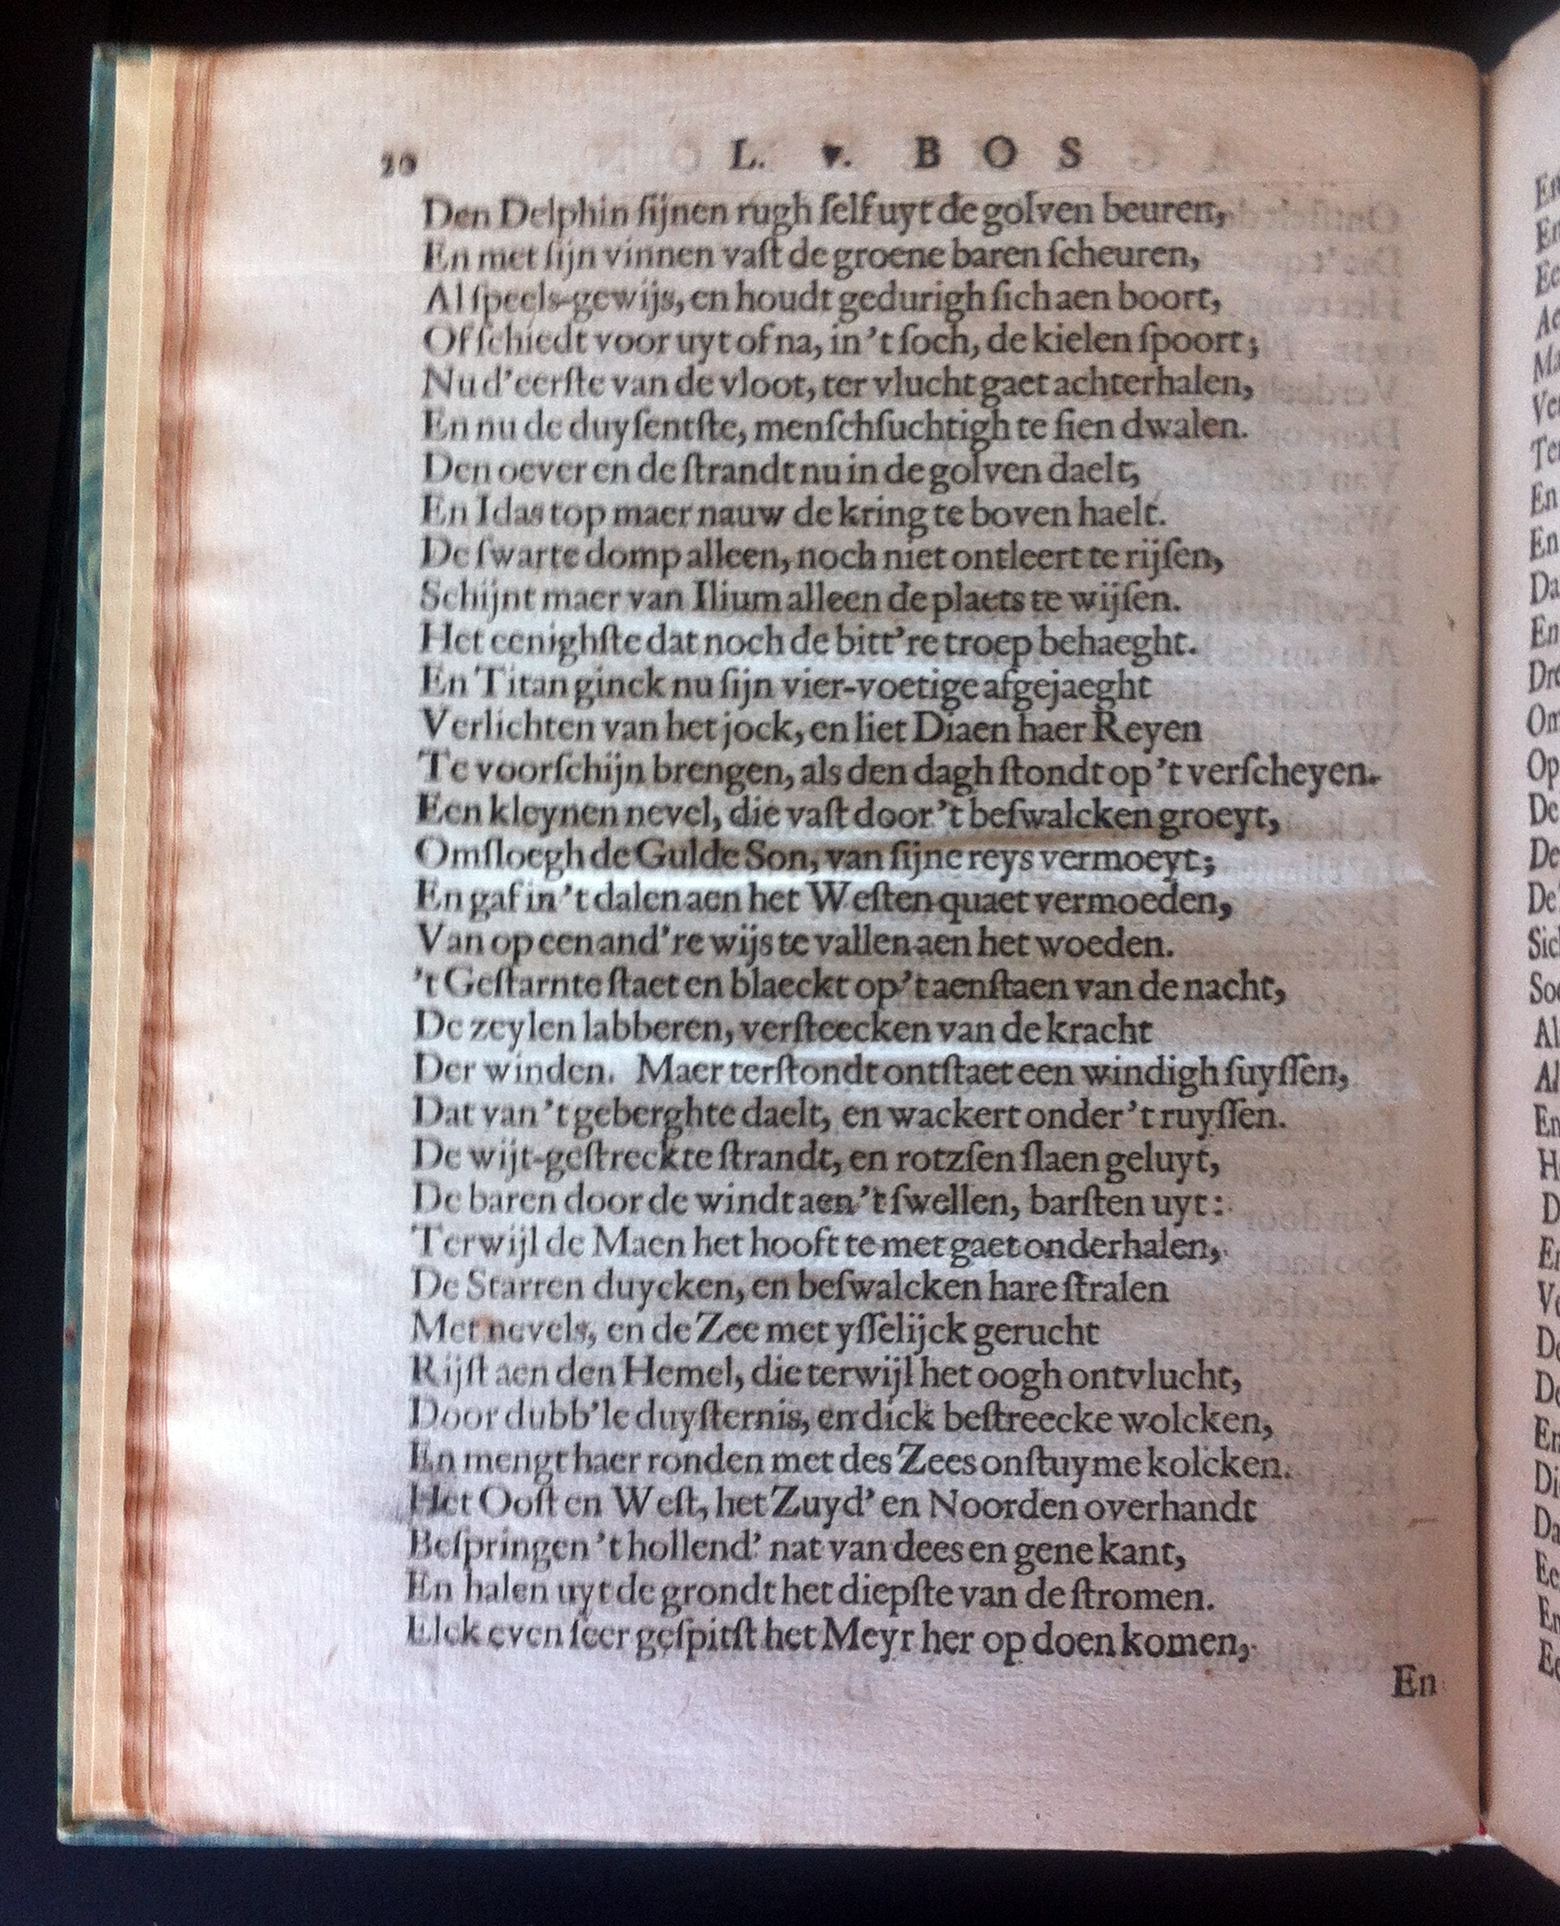 20 L. v. BOS
Den Delphin ſijnen rugh ſelf uyt de golven beuren,
En met ſijn vinnen vaſt de groene baren ſcheuren,
Al ſpeels-gewijs, en houdt gedurigh ſich aen boort,
Of ſchiedt voor uyt of na, in 't ſoch, de kielen ſpoort;
Nu d'eerſte van de vloot, ter vlucht gaet achterhalen,
En nu de duyſentſte, menſchſuchtigh te ſien dwalen.
Den oever en de ſtrandt nu in de golven daelt,
En Idas top maer nauw de kring te boven haelt.
De ſwarte domp alleen, noch niet ontleert te rijſen,
Schijnt maer van Ilium alleen de plaets te wijſen.
Het eenighſte dat noch de bitt're troep behaeght.
En Titan ginck nu ſijn vier-voetige afgejaeght
Verlichten van het jock, en liet Diaen haer Reyen
Te voorſchijn brengen, als den dagh ſtondt op 't verſcheyen.
Een kleynen nevel, die vaſt door 't beſwalcken groeyt,
Omſloegh de Gulde Son, van ſijne reys vermoeyt;
En gaf in 't dalen aen het Weſten quaet vermoeden,
Van op een and're wijs te vallen aen het woeden.
't Geſtarnte ſtaet en blaeckt op 't aenſtaen van de nacht,
De zeylen labberen, verſteecken van de kracht
Der winden. Maer terſtondt ontſtaet een windigh ſuyſſen,
Dat van 't geberghte daelt, en wackert onder 't ruyſſen.
De wijt-geſtreckte ſtrandt, en rotzſen ſlaen geluyt,
De baren door de windt aen 't ſwellen, barſten uyt:
Terwijl de Maen het hooft te met gaet onderhalen,
De Starren duycken, en beſwalcken hare ſtralen
Met nevels, en de Zee met yſſelijck gerucht
Rijſt aen den Hemel, die terwijl het oogh ontvlucht,
Door dubb'le duyſternis, en dick beſtreecke wolcken,
En mengt haer ronden met des Zees onſtuyme kolcken.
Het Ooſt en Weſt, het Zuyd' en Noorden overhandt
Beſpringen 't hollend' nat van dees en gene kant,
En halen uyt de grondt het diepſte van de ſtromen.
Elck even ſeer geſpitſt het Meyr her op doen komen,
En